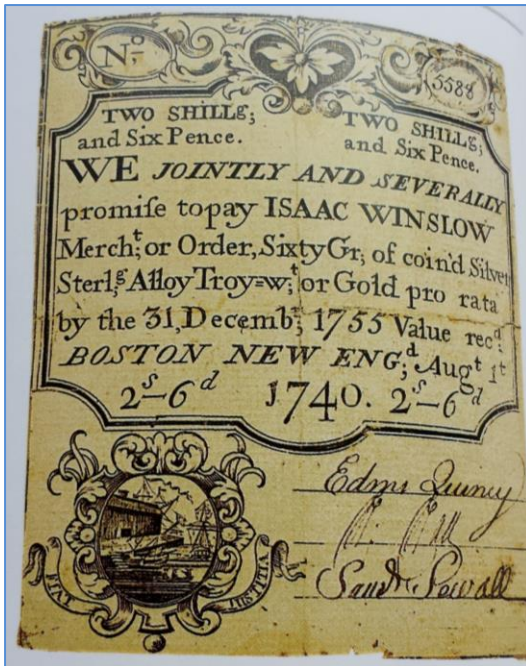 No.
5588
TWO SHILLg; TWO SHILLg;
and Six Pence. and Six Pence.
WE JOINTLY AND SEVERALLY
promiſe to pay ISAAC WINSLOW
Mercht; or Order, Sixty Gr; of coin'd Silver
Sterlg; Alloy Troy=wt; or Gold pro rata
by the 31, Decembr; 1755 Value recd;
BOSTON NEW ENGd; Augt 1t
2s–6d 1740. 2s–6d
Edmd Quincy
Saml Sewall
FIAT JUSTITIA